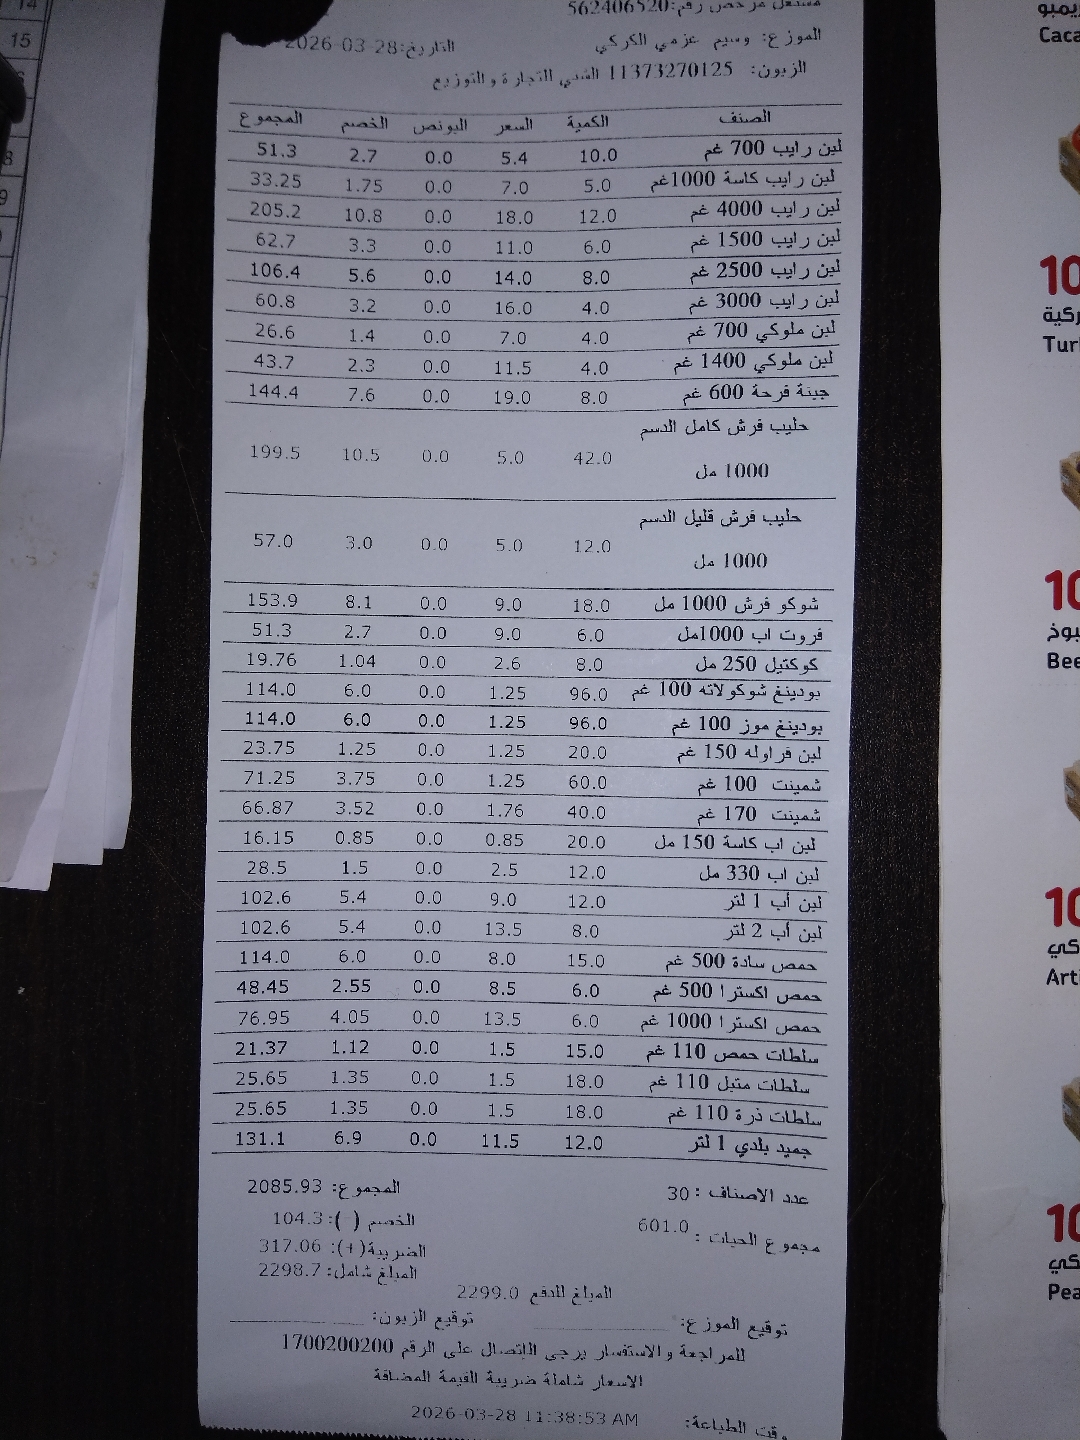 مشتغل مرخص رقم:562406520
الموزع: وسيم عزمي الكركي
التاريخ:2026-03-28
الزبون: 11373270125 الشني التجارة والتوزيع
الصنف الكمية السعر البونص الخصم المجموع
لبن رايب 700 غم 10.0 5.4 0.0 2.7 51.3
لبن رايب كاسة 1000غم 5.0 7.0 0.0 1.75 33.25
لبن رايب 4000 غم 12.0 18.0 0.0 10.8 205.2
لبن رايب 1500 غم 6.0 11.0 0.0 3.3 62.7
لبن رايب 2500 غم 8.0 14.0 0.0 5.6 106.4
لبن رايب 3000 غم 4.0 16.0 0.0 3.2 60.8
لبن ملوكي 700 غم 4.0 7.0 0.0 1.4 26.6
لبن ملوكي 1400 غم 4.0 11.5 0.0 2.3 43.7
جبنة فرحة 600 غم 8.0 19.0 0.0 7.6 144.4
حليب فرش كامل الدسم
1000 مل 42.0 5.0 0.0 10.5 199.5
حليب فرش قليل الدسم
1000 مل 12.0 5.0 0.0 3.0 57.0
شوكو فرش 1000 مل 18.0 9.0 0.0 8.1 153.9
فروت اب 1000مل 6.0 9.0 0.0 2.7 51.3
كوكتيل 250 مل 8.0 2.6 0.0 1.04 19.76
بودينغ شوكولاته 100 غم 96.0 1.25 0.0 6.0 114.0
بودينغ موز 100 غم 96.0 1.25 0.0 6.0 114.0
لبن فراوله 150 غم 20.0 1.25 0.0 1.25 23.75
شمينت 100 غم 60.0 1.25 0.0 3.75 71.25
شمينت 170 غم 40.0 1.76 0.0 3.52 66.87
لبن اب كاسة 150 مل 20.0 0.85 0.0 0.85 16.15
لبن اب 330 مل 12.0 2.5 0.0 1.5 28.5
لبن أب 1 لتر 12.0 9.0 0.0 5.4 102.6
لبن أب 2 لتر 8.0 13.5 0.0 5.4 102.6
حمص سادة 500 غم 15.0 8.0 0.0 6.0 114.0
حمص اكسترا 500 غم 6.0 8.5 0.0 2.55 48.45
حمص اكسترا 1000 غم 6.0 13.5 0.0 4.05 76.95
سلطات حمص 110 غم 15.0 1.5 0.0 1.12 21.37
سلطات متبل 110 غم 18.0 1.5 0.0 1.35 25.65
سلطات ذرة 110 غم 18.0 1.5 0.0 1.35 25.65
جميد بلدي 1 لتر 12.0 11.5 0.0 6.9 131.1
عدد الاصناف : 30
المجموع: 2085.93
مجموع الحبات : 601.0
الخصم ( ): 104.3
الضريبة(+): 317.06
المبلغ شامل: 2298.7
المبلغ للدفع 2299.0
توقيع الموزع:
توقيع الزبون:
للمراجعة والاستفسار يرجى الاتصال على الرقم 1700200200
الاسعار شاملة ضريبة القيمة المضافة
وقت الطباعة: 2026-03-28 11:38:53 AM
14
15
Caca
10
Turl
10
Bee
10
Arti
10
Pea